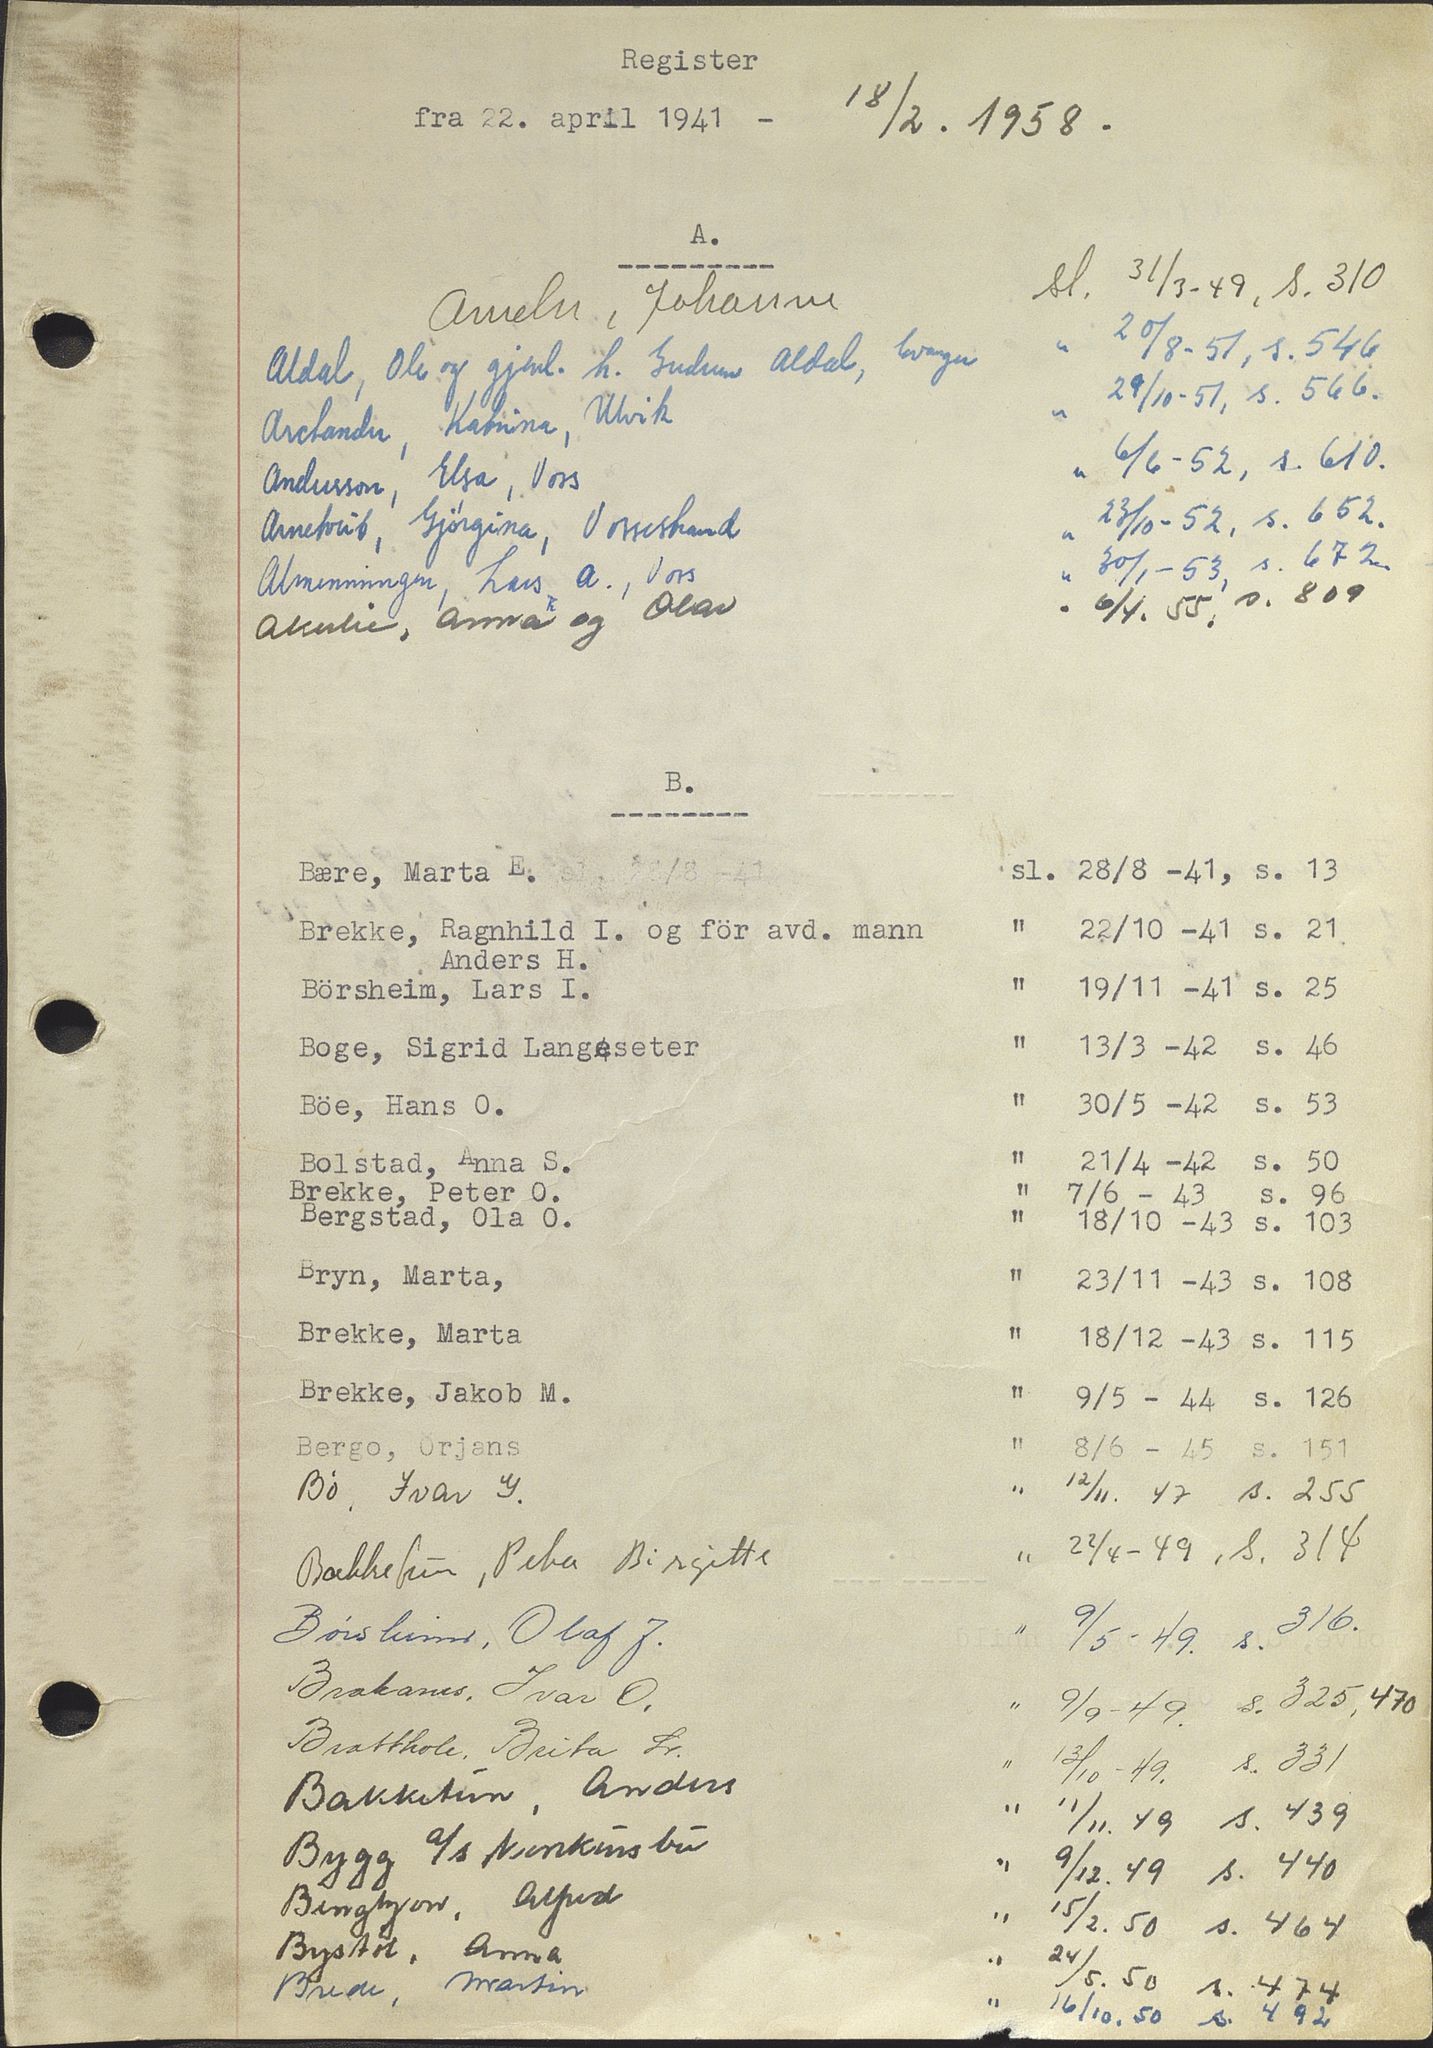 Register
fra 22. april 1941 - 18/2. 1958.
A.
Ameln, Johanne sl. 31/3-49, s. 310
Aldal, Ole og gjenl. h. Gudrun Aldal, Evanger " 20/8-51, s. 546
Arctander, Katrina, Ulvik " 29/10-51, s. 566.
Andersson, Elsa, Voss " 6/6-52, s. 610.
Arnetveit, Gjørgina, Vossestrand " 23/10-52, s. 652.
Almenningen, Lars A., Voss " 30/1-53, s. 672
Akerlie, Anna K og Olav " 6/4. 55, s. 809
B.
Bære, Marta E. sl. 28/8 -41, s. 13
Brekke, Ragnhild I. og för avd. mann " 22/10 -41 s. 21
Anders H.
Börsheim, Lars I. " 19/11 -41 s. 25
Boge, Sigrid Langeseter " 13/3 -42 s. 46
Böe, Hans O. " 30/5 -42 s. 53
Bolstad, Anna S. " 21/4 -42 s. 50
Brekke, Peter O. " 7/6 - 43 s. 96
Bergstad, Ola O. " 18/10 -43 s. 103
Bryn, Marta, " 23/11 -43 s. 108
Brekke, Marta " 18/12 -43 s. 115
Brekke, Jakob M. " 9/5 - 44 s. 126
Bergo, Örjans " 8/6 - 45 s. 151
Bö, Ivar " 12/11. 47 s. 255
Bakketun, Birgitte " 22/4-49, s. 314
Börsheim, Olaf J. " 9/5-49. s. 316.
Brakanes, Ivar O. " 9/9-49. s. 325, 470
Bratthole, Brita Lr. " 13/10-49. s. 331
Bakketun, Anders " 11/11. 49 s. 439
Bygg A/s " 9/12. 49 s. 440
Alfred " 15/2. 50 s. 464
Bystöl, Anna " 24/5. 50 s. 474
Brede, Martin " 16/10. 50 s. 492